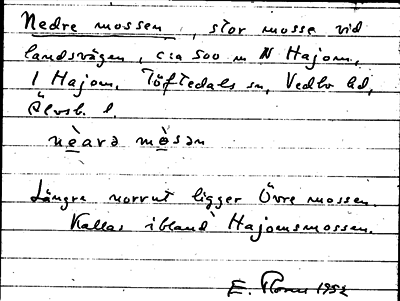 Nedre mossen, stor mosse vid
landsvägen, c:a 500 m N Hajom,
1 Hajom, Töftedals sn, Vedbo hd,
Älvsb. l.
nèarə mòsən
Längre norrut ligger Övre mossen.
Kallas ibland Hajomsmossen.
E. 1952